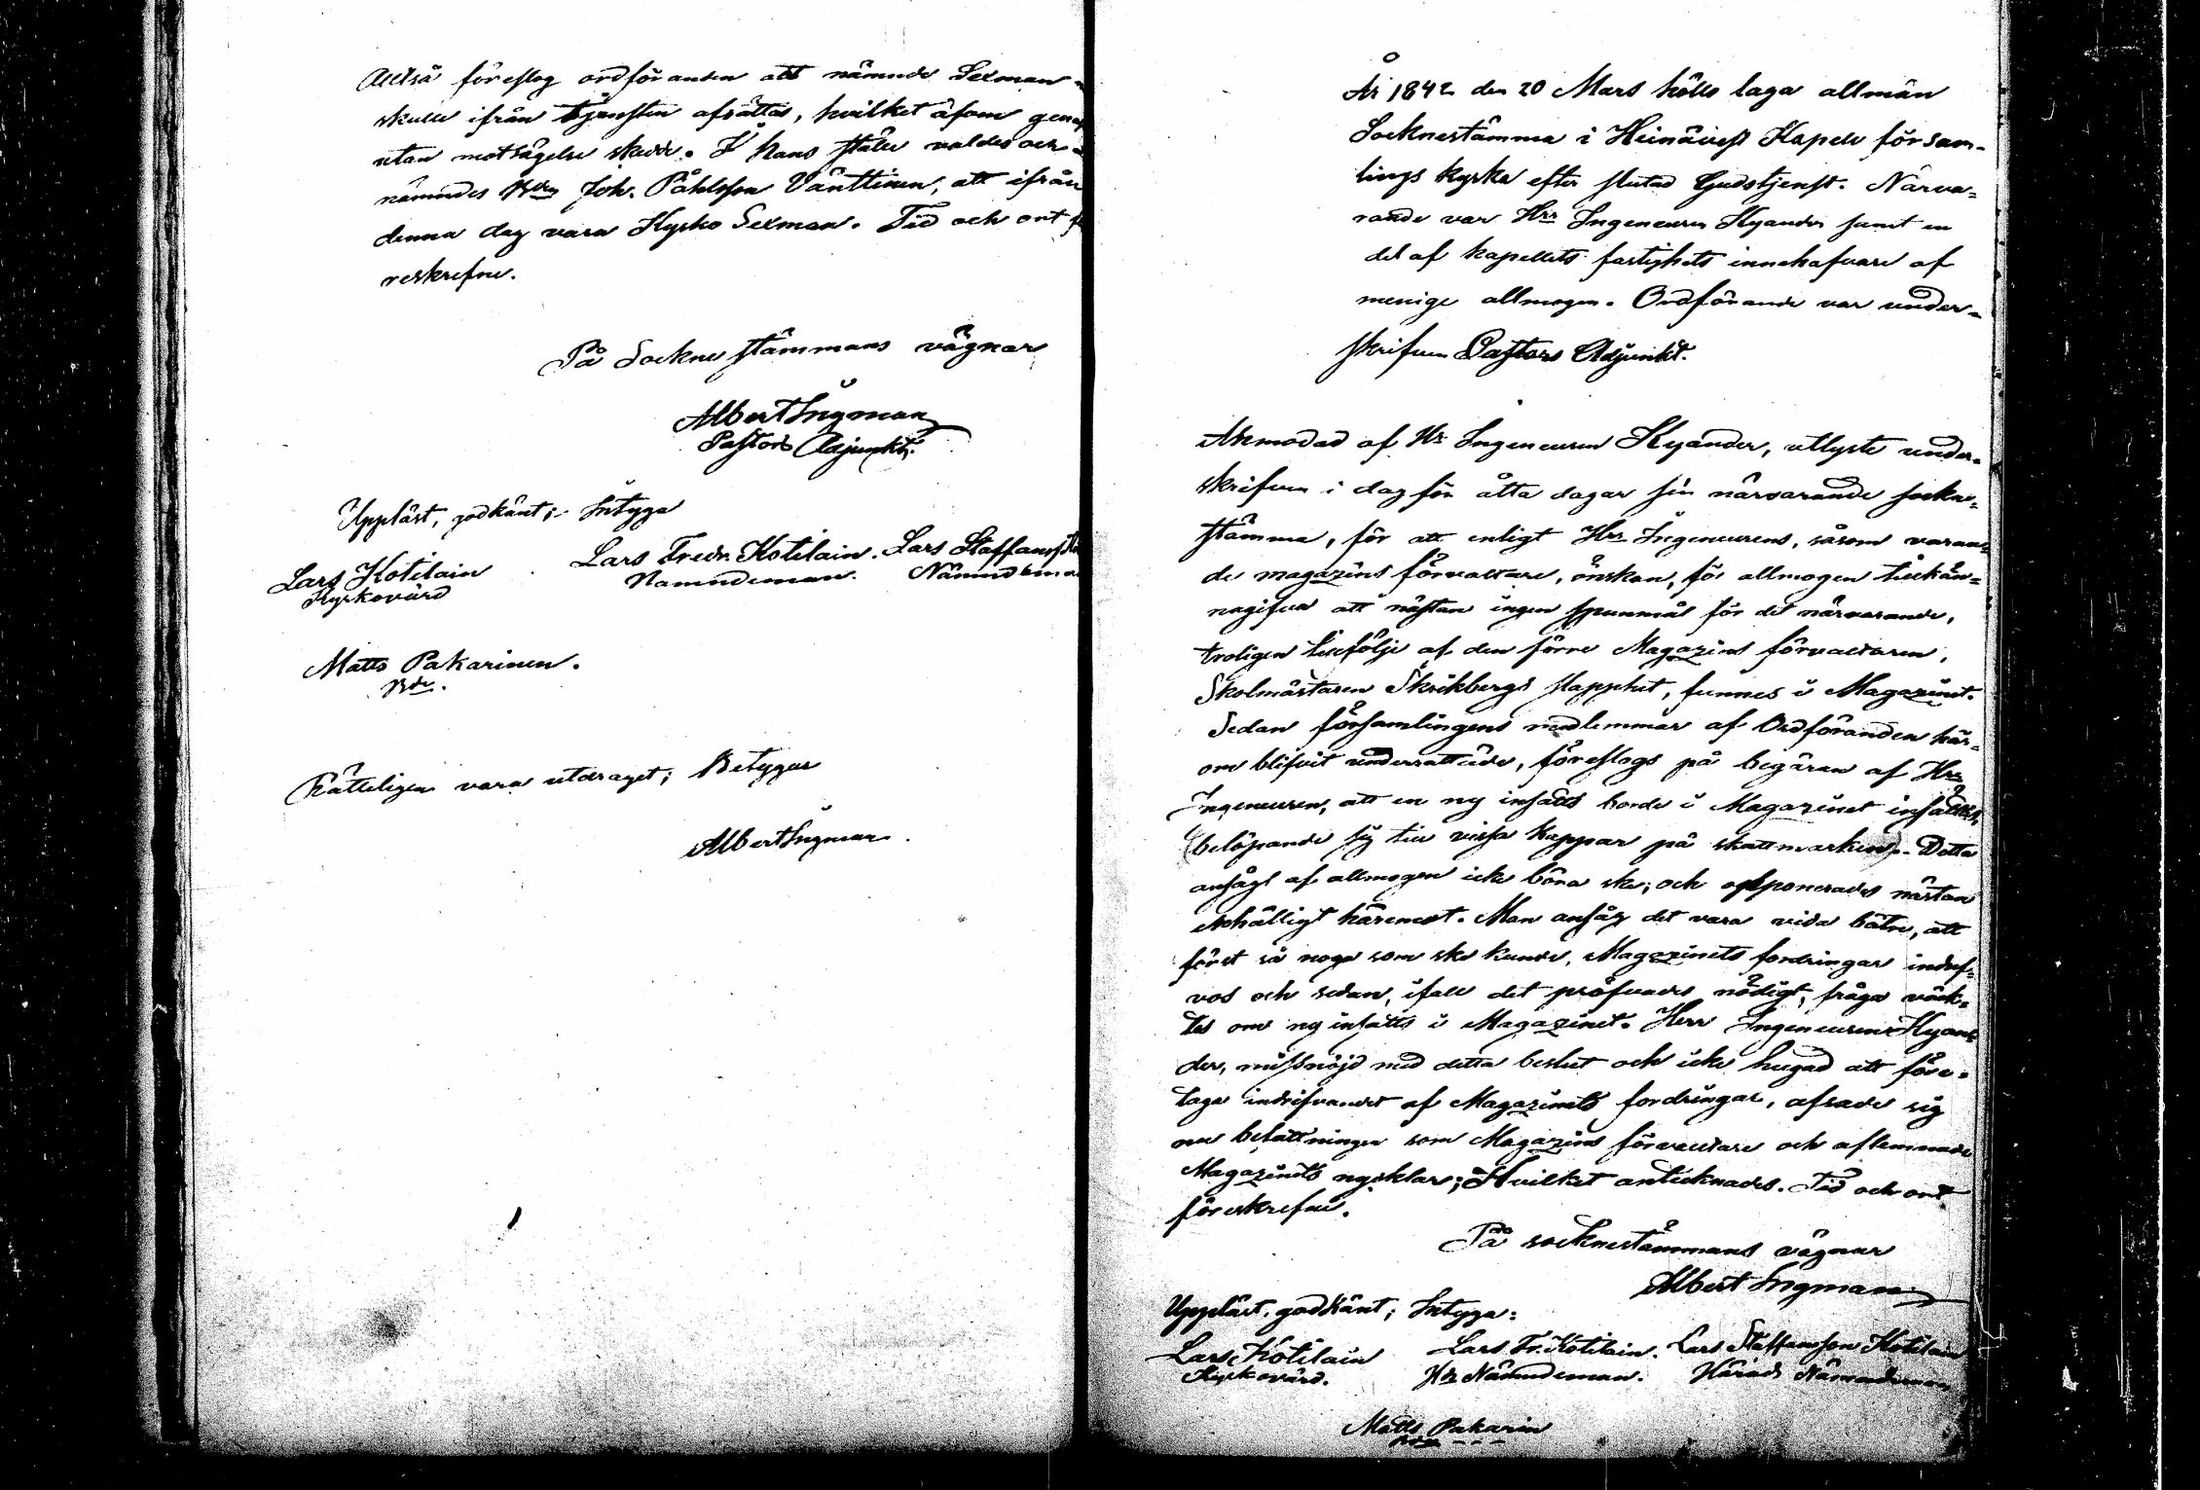 Alltså föreslog ordföranden att nämnde Sexman
skulle ifrån tjensten afsättas, hvilket äfven genast
utan motsägelse skedde. I hans ställe valdes och
nämndes Bdn Joh. Påhlsson Vänttinen, att ifrån
denna dag vara Kyrko Sexman. Tid och ort fö
reskrefne.
På Sockne stämmans vägnar
Albert Ingman
Pastors Adjunkt.
Uppläst, godkänt; Intyga
Lars Kotilain Lars Fredr. Kotilain. Lars Staffansson
Kyrkovärd Nämndeman. Nämndeman
Matts Pakarinen.
Bde.
Rätteligen vara utdraget; Betygar
Albert Ingman.
År 1842 den 20 Mars hölls laga allmän
Socknestämma i Heinävesi Kapell försam-
lings kyrka efter slutad Gudstjenst. Närva-
rande var Hrr Ingeneuren Kyander samt en
del af kapellets fastighets innehafvare af
menige allmogen. Ordförande var under-
skrifven Pastors Adjunkt.
Anmodad af Hr Ingeneuren Kyander, utlyste under-
skrifven i dag för åtta dagar sen närvarande sockne-
stämma, för att enligt Hrr Ingeneurens, såsom varan-
de magazins förvaltare, önskan, för allmogen tillkän-
nagifva att nästan ingen spannmål för det närvarande,
troligen tillfölje af den förre Magazins förvaltaren,
Skolmästaren Skrikbergs slapphet, funnes i Magazinet.
Sedan församlingens medlemmar af Ordföranden här-
om blifvit underrättade, föreslogs på begäran af Hrr
Ingeneuren, att en ny insätts borde i Magazinet insättas,
(belöpande sig till vissa kappar på skattmarken). Detta
ansågs af allmogen icke böra ske; och opponerades nästan
enhälligt häremot. Man ansåg det vara vida bättre, att
först så noga som ske kunde, Magazinets fordringar indref-
vos och sedan, ifall det pröfvades nödigt, fråga väck-
tes om ny insätts i Magazinet. Herr Ingeneuren Kyan-
der, missnöjd med detta beslut och icke hugad att före-
taga indrifvandet af Magazinets fordringar, afsade sig
nu befattningen som Magazins förvaltare och aflemnade
Magazinets nycklar; Hvilket antecknades. Tid och ort
föreskrefne.
På socknestämmans vägnar
Albert Ingman
Uppläst, godkänt; Intyga:
Lars Kotilain Lars Fr. Kotilain. Lars Staffansson Kotilain
Kyrkovärd. Hds Nämndeman. Härads Nämndeman
Matts Pakarin